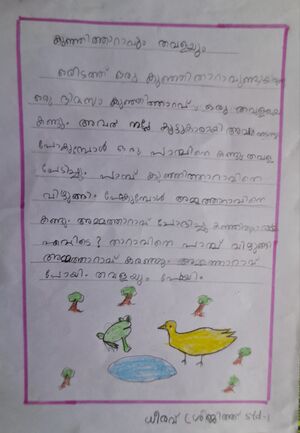 കുഞ്ഞിത്താറാവും തവളയും
ഒരിടത്ത് ഒരു കുഞ്ഞിത്താറാവുണ്ടായി
ഒരു ദിവസം കുഞ്ഞിത്താറാവ് ഒരു തവളയെ
കണ്ടു. അവർ നല്ല കൂട്ടുകാരായി
പോകുമ്പോൾ ഒരു പാമ്പിനെ കണ്ടു തവള
പേടിച്ചു. പാമ്പ് കുഞ്ഞിത്താറാവിനെ
വിഴുങ്ങി. പോകുമ്പോൾ അമ്മത്താറാവിനെ
കണ്ടു. അമ്മത്താറാവ് ചോദിച്ചു
എവിടെ? താറാവിനെ പാമ്പ് വിഴുങ്ങി
അമ്മത്താറാവ് കരഞ്ഞു. അമ്മത്താറാവ്
പോയി. തവളയും പോയി.
ധീരവ് (ശ്രീജിത്ത് Std-1